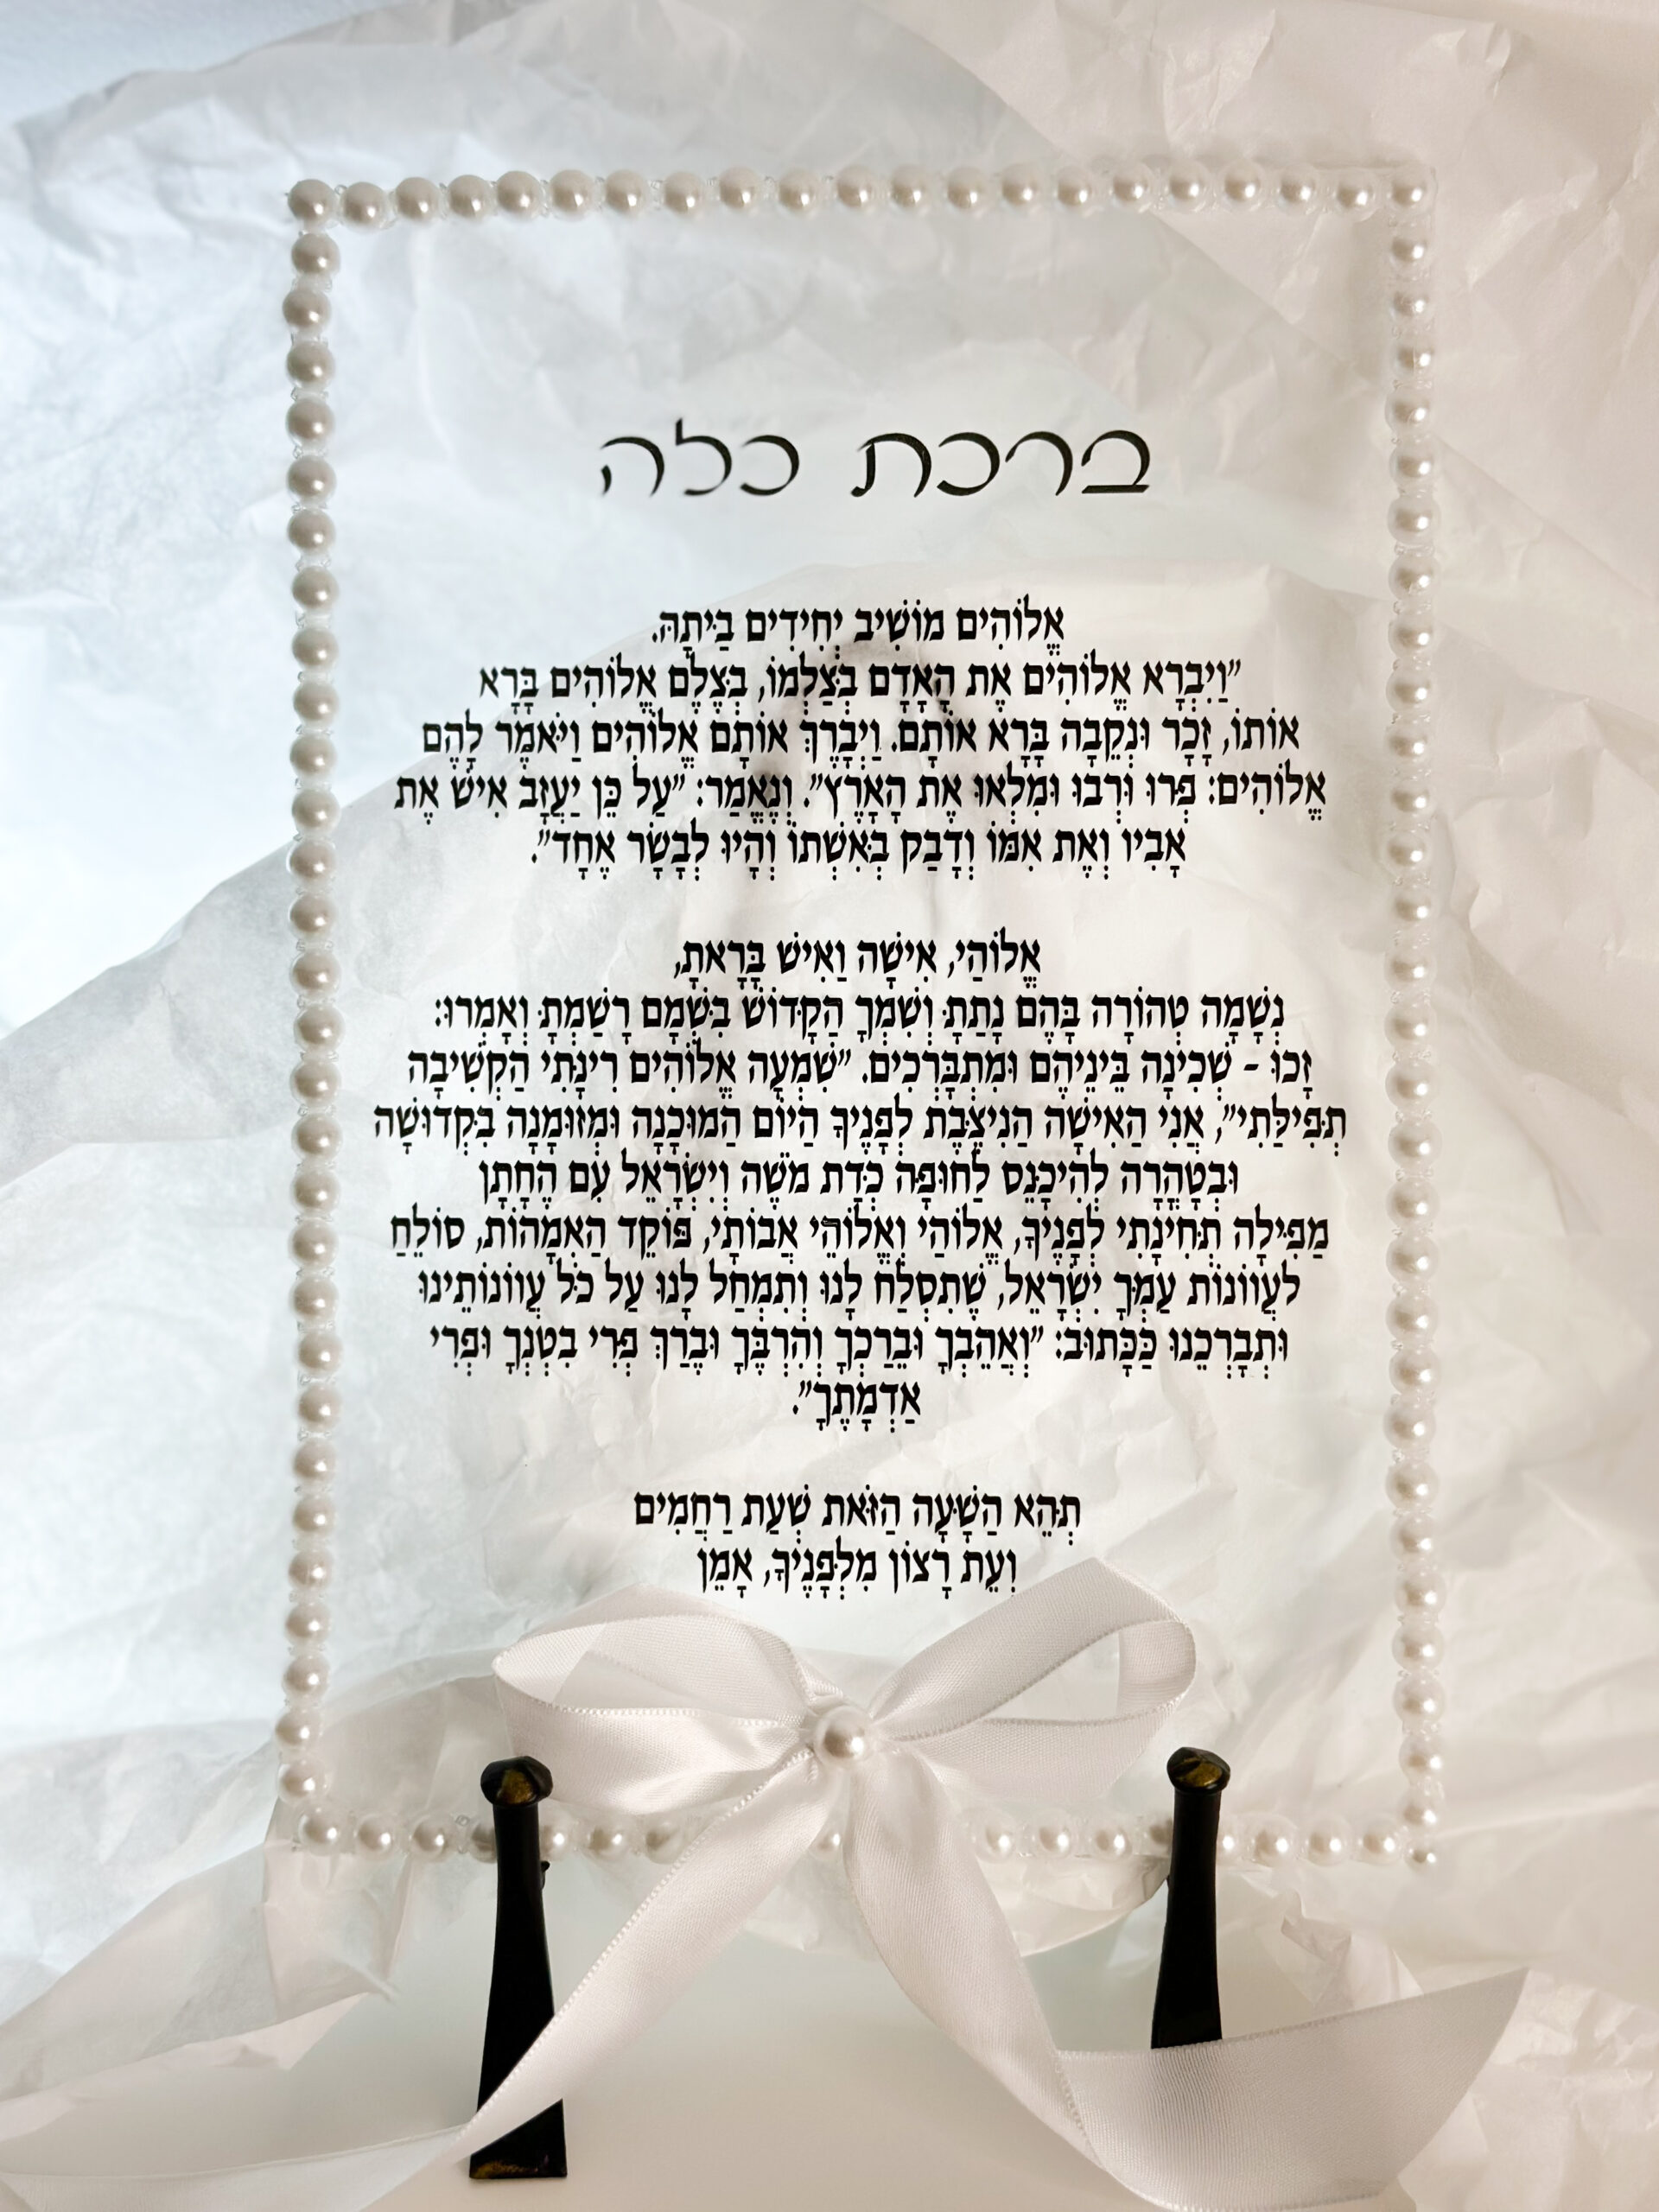 ברכת כלה
אֱלוֹהִים מוֹשִׁיב יְחִידִים בַּיְתָהּ.
"וַיִּבְרָא אֱלוֹהִים אֶת הָאָדָם בְּצַלְמוֹ, בְּצֶלֶם אֱלוֹהִים בָּרָא
אוֹתוֹ, זָכָר וּנְקֵבָה בָּרָא אוֹתָם. וַיְבָרֶךְ אוֹתָם אֱלוֹהִים וַיֹּאמֶר לָהֶם
אֱלוֹהִים: פְּרוּ וּרְבוּ וּמִלְאוּ אֶת הָאָרֶץ". וְנֶאֱמַר: "עַל כֵּן יַעֲזָב אִישׁ אֶת
אָבִיו וְאֶת אִמּוֹ וְדָבַק בְּאִשְׁתּוֹ וְהָיוּ לְבָשָׂר אֶחָד".
אֱלוֹהַי, אִישָׁה וַאִישׁ בָּרָאתָ,
נְשָׁמָה טְהוֹרָה בָּהֶם נָתַתָּ וְשִׁמְךָ הַקָּדוֹשׁ בִּשְׁמָם רָשַׁמְתָּ וְאָמְרוּ:
זָכוּ - שְׁכִינָה בֵּינֵיהֶם וּמִתְבָּרְכִים. "שִׁמְעָה אֱלוֹהִים רִינָּתִי הַקְשִׁיבָה
תְּפִילָּתִי", אֲנִי הַאִישָׁה הַנִּיצֶּבֶת לְפָנֶיךָ הַיּוֹם הַמּוּכָנָה וּמְזוּמָּנָה בִּקְדוּשָׁה
וּבְטָהֳרָה לְהִיכָּנֵס לַחוּפָּה כְּדָת מֹשֶׁה וְיִשְׂרָאֵל עִם הֶחָתָן
מַפִּילָה תְּחִינָּתִי לְפָנֶיךָ, אֱלוֹהַי וְאֱלוֹהֵי אֲבוֹתַי, פּוֹקֵד הַאִמָּהוֹת, סוֹלֵחַ
לַעֲווֹנוֹת עַמְּךָ יִשְׂרָאֵל, שֶׁתִּסְלַח לָנוּ וְתִמְחַל לָנוּ עַל כֹּל עֲווֹנוֹתֵינוּ
וּתְבָרְכֵנוּ כַּכָּתוּב: "וְאֲהֵבְךָ וּבֵרַכְךָ וְהִרְבֶּךָ וּבֶרַךְ פְּרִי בִטְנְךָ וּפְרִי
אַדְמָתֶךָ".
תְּהֵא הַשָּׁעָה הַזֹּאת שְׁעַת רַחֲמִים
וְעֵת רָצוֹן מִלְּפָנֶיךָ, אָמֵן